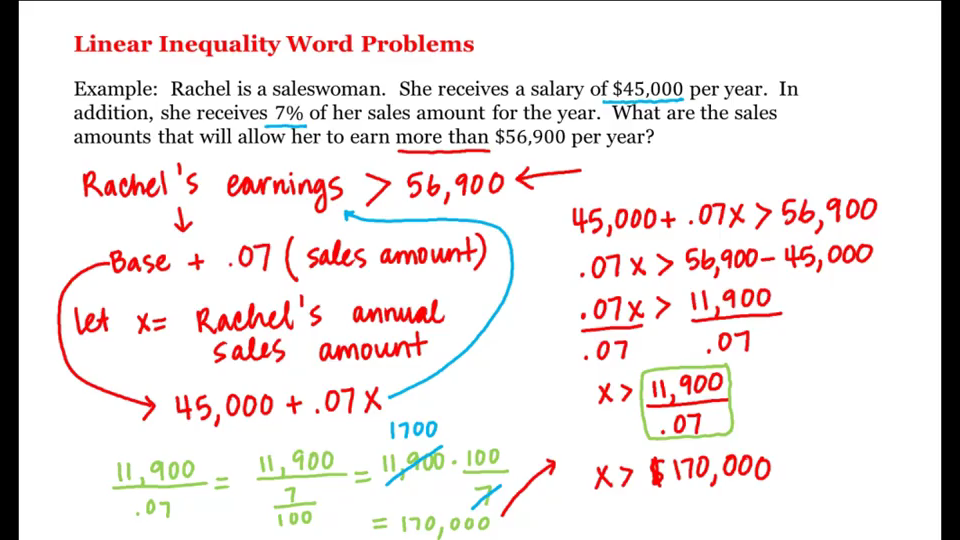 Linear Inequality Word Problems
Example: Rachel is a saleswoman. She receives a salary of $45,000 per year. In
addition, she receives 7% of her sales amount for the year. What are the sales
amounts that will allow her to earn more than $56,900 per year?
Rachel's earnings > 56,900
Base + .07 ( sales amount)
let x = Rachel's annual
sales amount
45,000 + .07x
45,000 + .07x > 56,900
.07x > 56,900 - 45,000
.07x > 11,900
.07 .07
x > 11,900
.07
x > $170,000
1700
11,900 = 11,900 = 11,900 · 100
.07 7 7
100
= 170,000